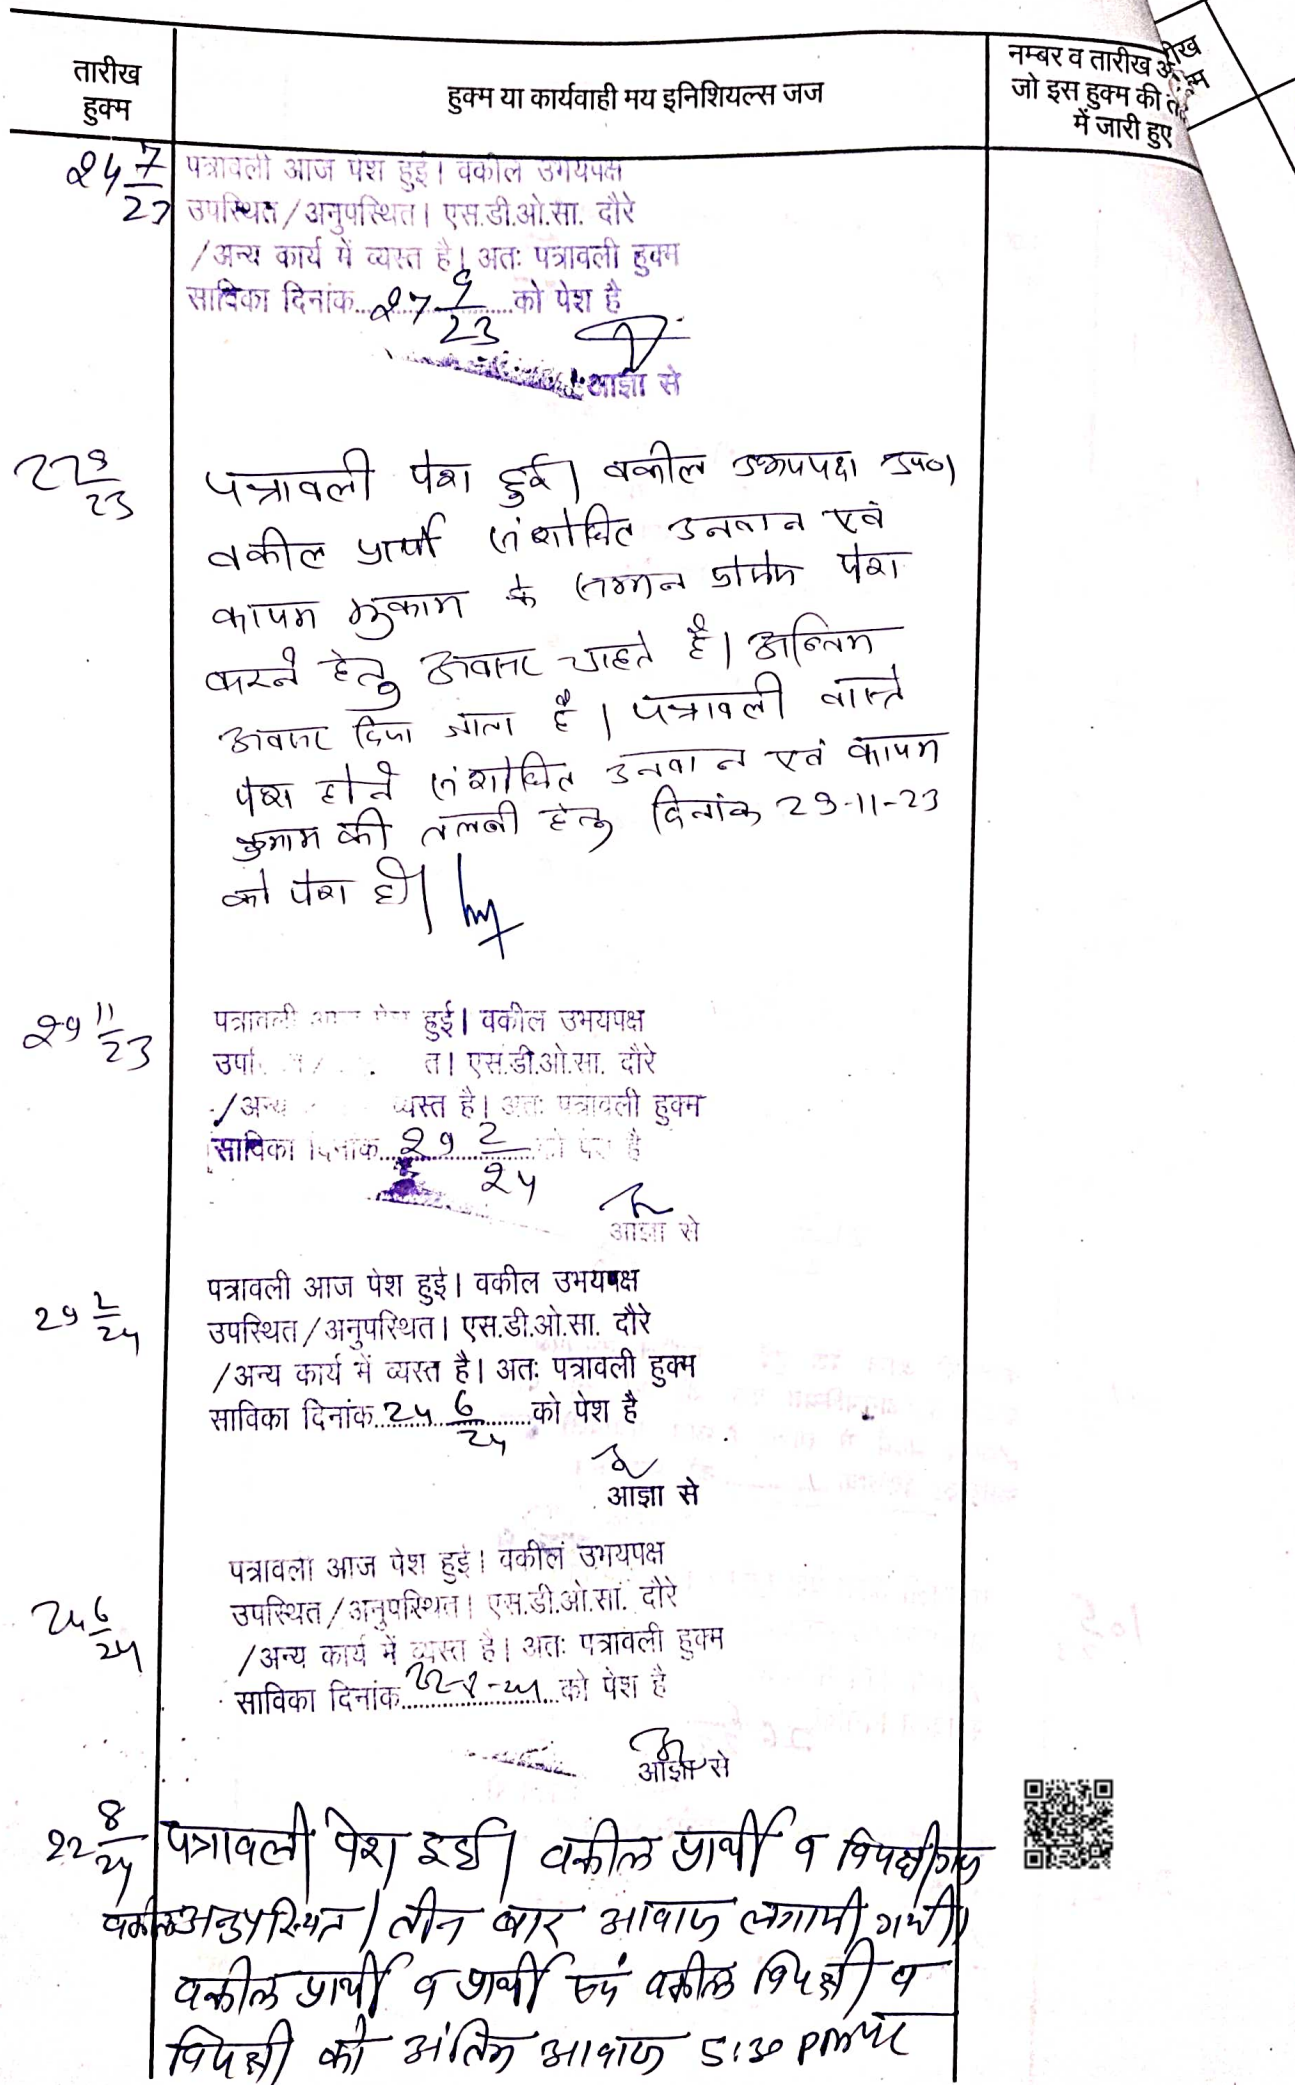 तारीख
हुक्म
हुक्म या कार्यवाही मय इनिशियल्स जज
नम्बर व तारीख
जो इस हुक्म की
में जारी हुए
24 7/23
पत्रावली आज पेश हुई। वकील उभयपक्ष
उपस्थित/अनुपस्थित। एस.डी.ओ.सा. दौरे
/अन्य कार्य में व्यस्त है। अतः पत्रावली हुक्म
साविका दिनांक..27 9/23..को पेश है
आज्ञा से
22 9/23
पत्रावली पेश हुई। वकील उभयपक्ष उप0।
वकील प्रार्थी संशोधित उनवान एवं
कायम मुकाम के सम्मन पेश
करने हेतु अवसर चाहते है। अन्तिम
अवसर दिया जाता है। पत्रावली वास्ते
पेश होने संशोधित उनवान एवं कायम
मुकाम की तलबी हेतु दिनांक 29-11-23
को पेश हो।
29 11/23
पत्रावली आज पेश हुई। वकील उभयपक्ष
उप त। एस.डी.ओ.सा. दौरे
/अन्य व्यस्त है। अतः पत्रावली हुक्म
साविका दिनांक..29 2/24..को पेश है
आज्ञा से
29 2/24
पत्रावली आज पेश हुई। वकील उभयपक्ष
उपस्थित/अनुपस्थित। एस.डी.ओ.सा. दौरे
/अन्य कार्य में व्यस्त है। अतः पत्रावली हुक्म
साविका दिनांक..24 6/24..को पेश है
आज्ञा से
24 6/24
पत्रावली आज पेश हुई। वकील उभयपक्ष
उपस्थित/अनुपस्थित। एस.डी.ओ.सा. दौरे
/अन्य कार्य में व्यस्त है। अतः पत्रावली हुक्म
साविका दिनांक..22-8-24..को पेश है
आज्ञा से
22 8/24
पत्रावली पेश हुई। वकील प्रार्थी व विपक्षीगण
वकील अनुपस्थित। तीन बार आवाज लगायी गयी।
वकील प्रार्थी व प्रार्थी एवं वकील विपक्षी व
विपक्षी को अंतिम आवाज 5:30 pm पर